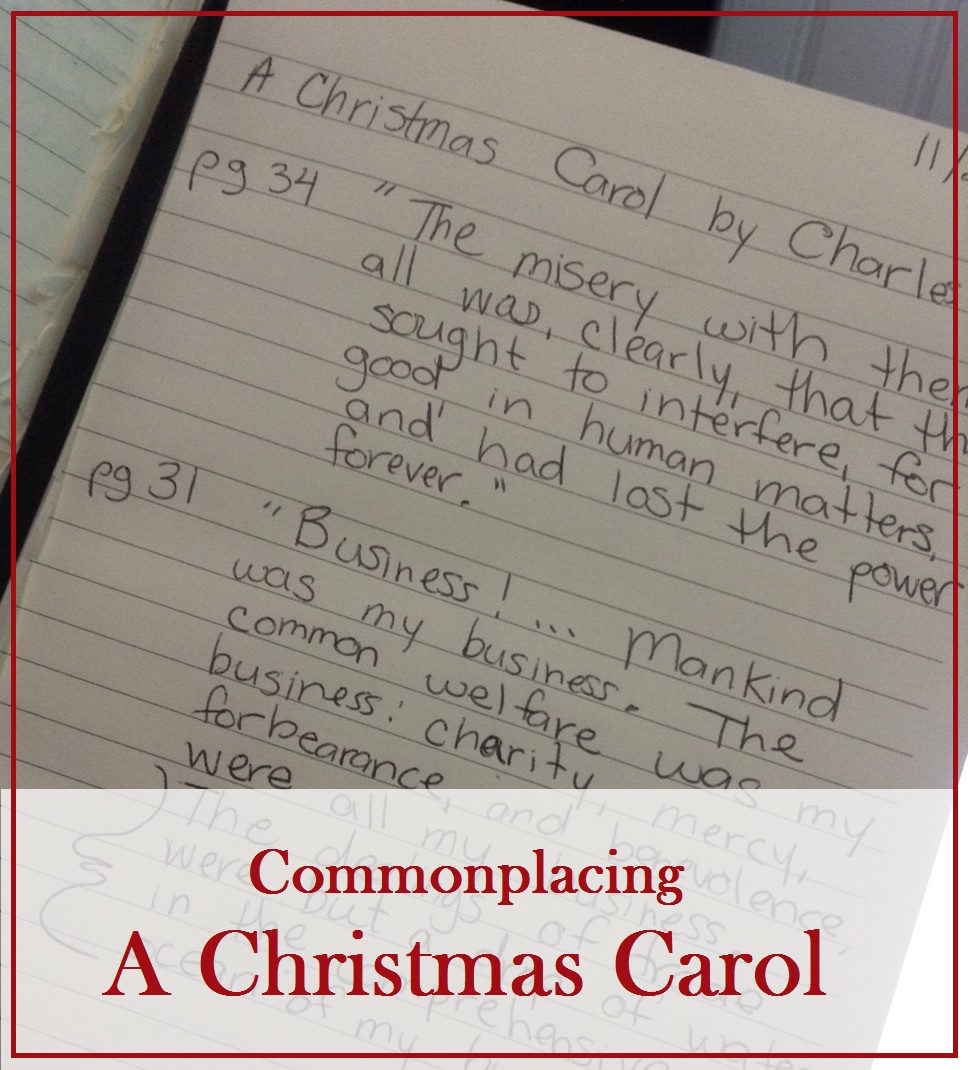 11/
A Christmas Carol by Charles
pg 34 "The misery with
all was, clearly, that
sought to interfere, for
good in human matters,
and had lost the power
forever."
pg 31 "Business! ... Mankind
was my business. The
common welfare was my
business: charity, mercy,
forbearance, and benevolence,
were all my business.
The dealings of trade
were but a drop of water
in the comprehensive
ocean of my
Commonplacing
A Christmas Carol